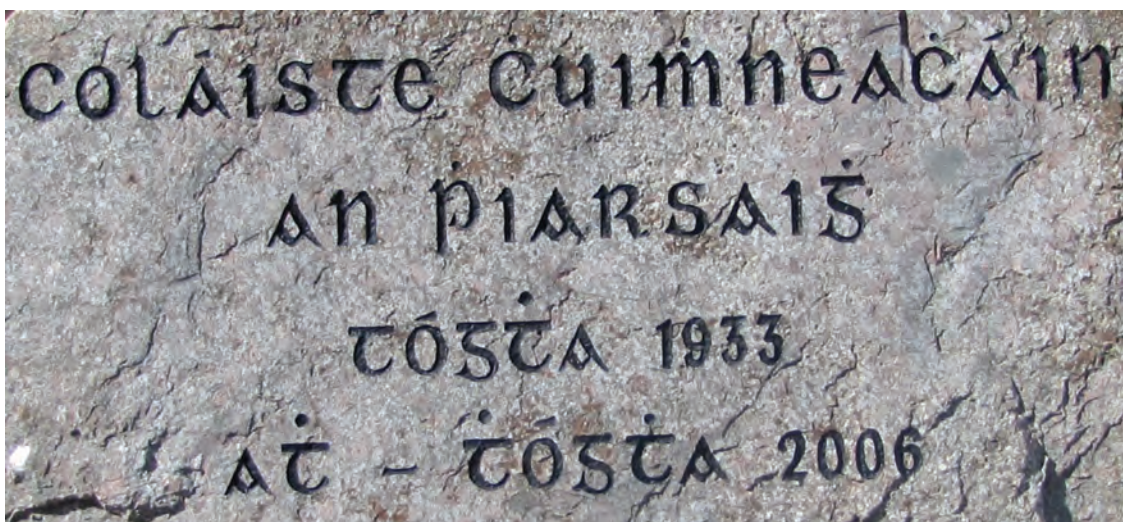 Coláiste Ċuiṁneaċáin
an Ṗiarsaiġ
Tógṫa 1933
Aṫ - Ṫógṫa 2006